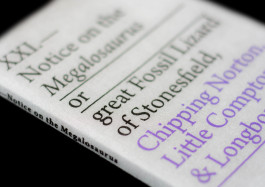 XXI.—
Notice on the
Megalosaurus
or
great Fossil Lizard
of Stonesfield,
Chipping Norton,
Little Compton
& Longbo
Notice on the Megalosaurus